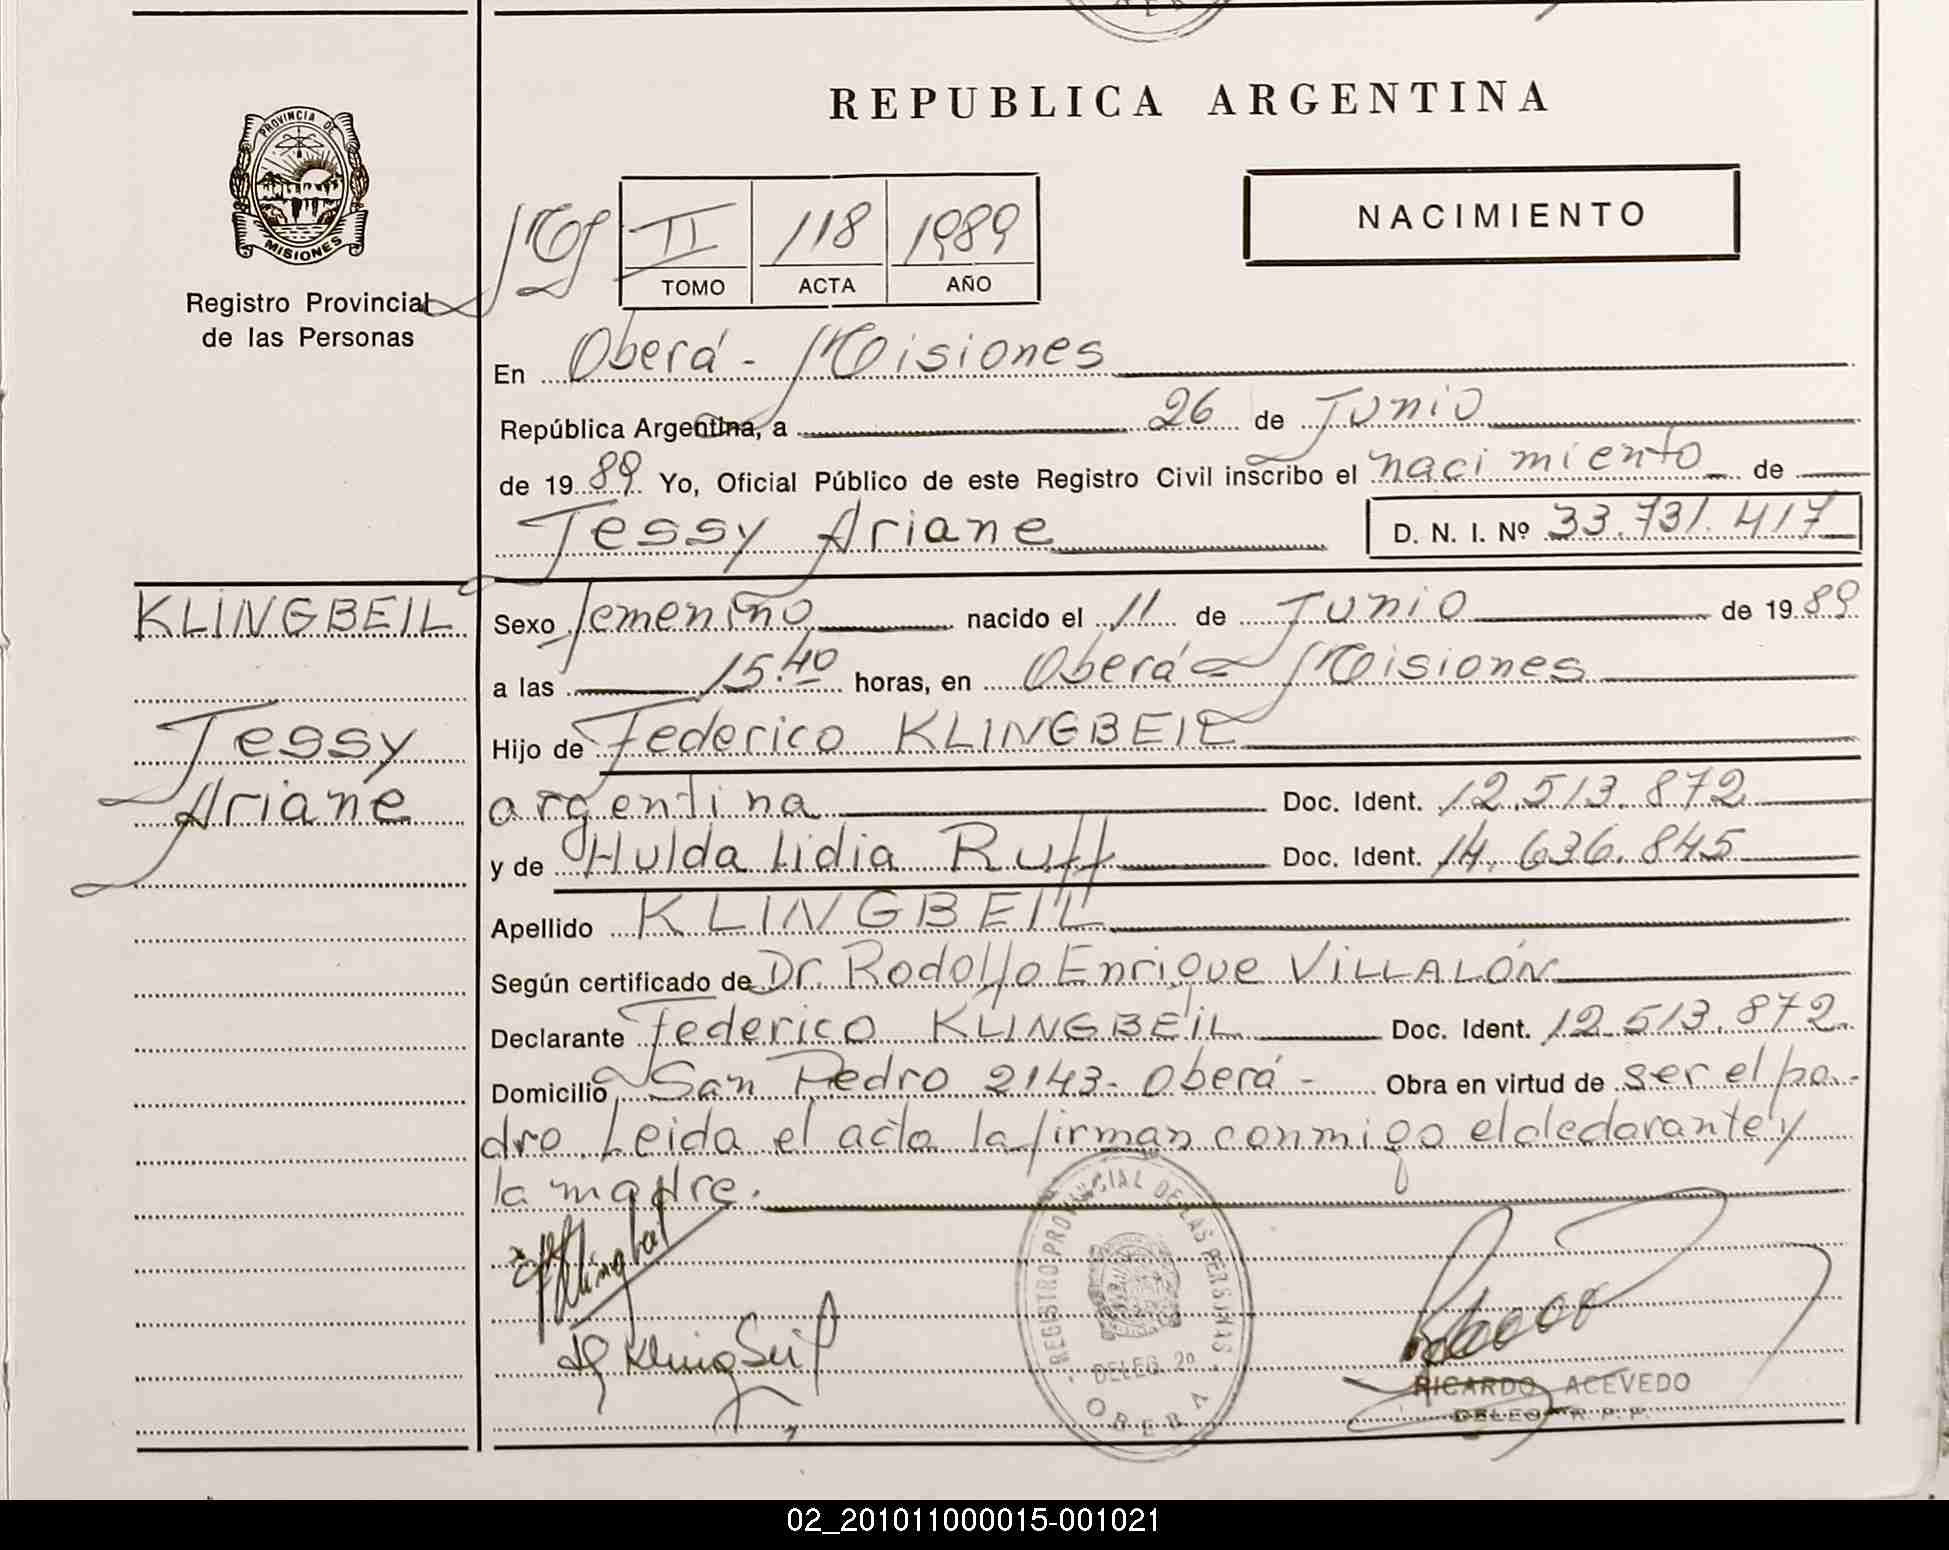 REPUBLICA ARGENTINA
PROVINCIA DE
MISIONES
Registro Provincial
de las Personas
II 118 1989
TOMO ACTA AÑO
NACIMIENTO
En Oberá - Misiones
República Argentina, a 26 de Junio
de 1989 Yo, Oficial Público de este Registro Civil inscribo el nacimiento de
Jessy Ariane D. N. I. Nº 33.731.417
KLINGBEIL
Jessy
Ariane
Sexo femenino nacido el 11 de Junio de 1989
a las 15.40 horas, en Oberá - Misiones
Hijo de Federico KLINGBEIL
argentina Doc. Ident. 12.513.872
y de Hulda Lidia Ruff Doc. Ident. 14.636.845
Apellido KLINGBEIL
Según certificado de Dr. Rodolfo Enrique VILLALÓN
Declarante Federico KLINGBEIL Doc. Ident. 12.513.872
Domicilio San Pedro 2143- Oberá - Obra en virtud de ser el pa-
dre. Leida el acta la firman conmigo el declarante y
la madre.
Klingbeil
Klingbeil
REGISTRO PROVINCIAL DE LAS PERSONAS
DELEG. 2ª
OBERA
RICARDO ACEVEDO
DELEG. R. P. P.
02_201011000015-001021